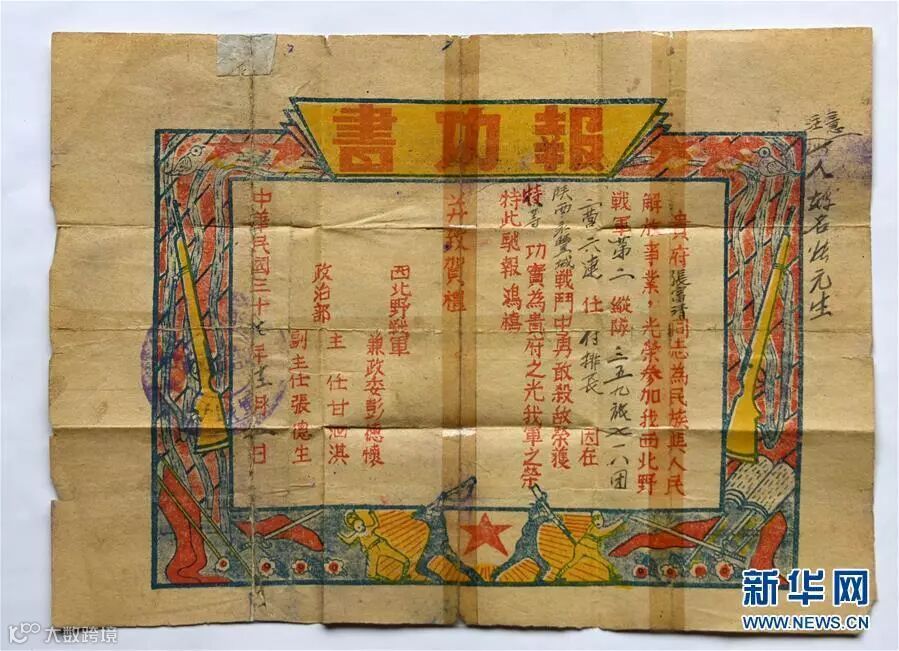 報功書
貴府張富清同志為民族與人民
解放事業，光榮參加我西北野
戰軍第二縱隊三五九旅七一八团
二营六連任付排長 因在
陝西永豐城戰鬥中勇敢殺敵榮獲
特等功實為貴府之光我軍之榮
特此馳報鴻禧
并致賀禮
西北野戰軍
兼政委彭德懷
政治部
主任甘泗淇
副主任張德生
中華民國三十七年十二月 日
注意
此人
元生
新华网
WWW.NEWS.CN
大数跨境